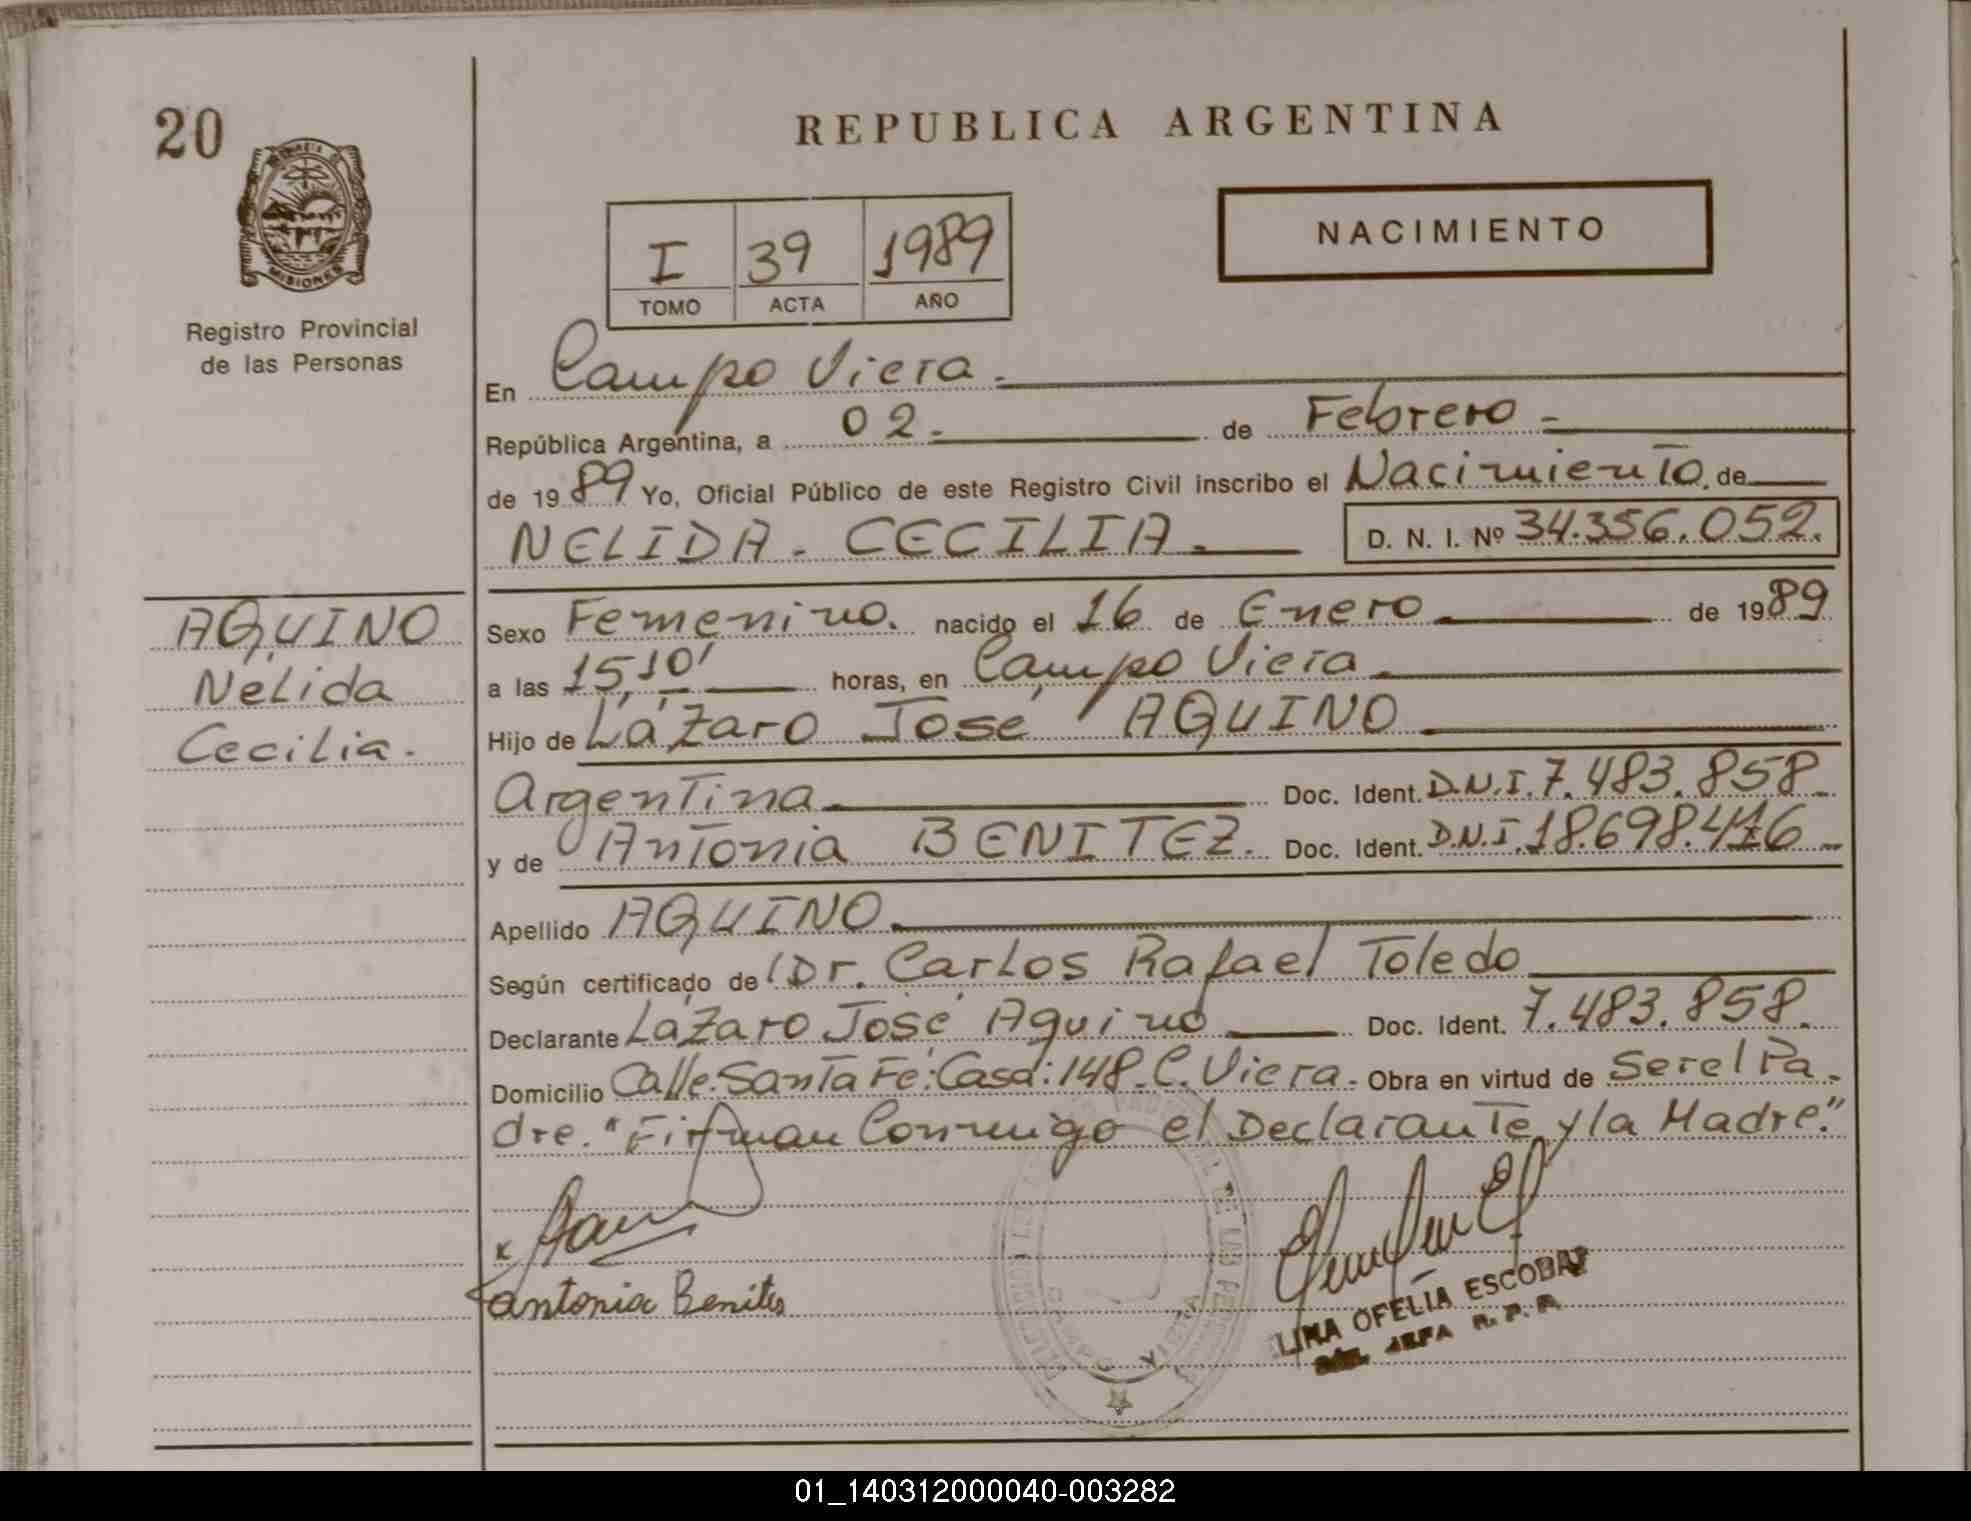 20
REPUBLICA ARGENTINA
MISIONES
Registro Provincial
de las Personas
I 39 1989
TOMO ACTA AÑO
NACIMIENTO
En Campo Viera.-
República Argentina, a 02.- de Febrero.-
de 1989 Yo, Oficial Público de este Registro Civil inscribo el Nacimiento de
NELIDA - CECILIA.- D. N. I. Nº 34.356.052.
AQUINO
Nélida
Cecilia.-
Sexo Femenino. nacido el 16 de Enero de 1989
a las 15,10' horas, en Campo Viera
Hijo de Lázaro José AQUINO
Argentina Doc. Ident. D.N.I. 7.483.858
y de Antonia BENITEZ. Doc. Ident. D.N.I. 18.698.416
Apellido AQUINO
Según certificado de Dr. Carlos Rafael Toledo
Declarante Lázaro José Aquino Doc. Ident. 7.483.858.
Domicilio Calle: Santa Fé: Casa: 148. C. Viera.- Obra en virtud de Ser el Pa-
dre. "Firman Conmigo el Declarante y la Madre."
x
Antonia Benites
LINA OFELIA ESCOBAR
JEFA R. P. P.
01_140312000040-003282